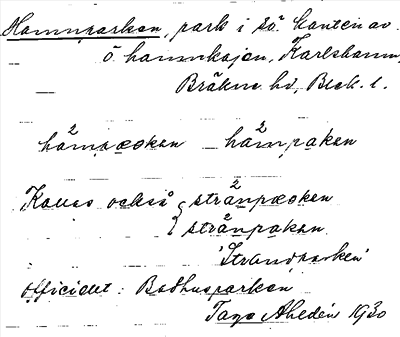 Hamnparken, park i sö. kanten av
ö hamnkajen, Karlshamn,
Bräkne hd, Blek. l.
2 2
hàmpæskan hàmpakan
2
Kallas också { strànpæskan
strànpakan
'Strandparken'
officiellt: Badhusparken
Tage Ahldén 1930